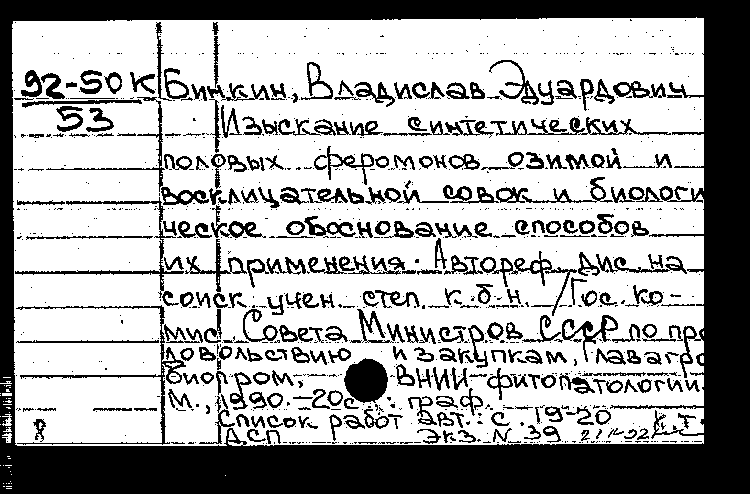 92-50К Бинкин, Владислав Эдуардович
53 Изыскание синтетических
половых феромонов озимой и
восклицательной совок и биологи
ческое обоснование способов
их применения. Автореф. дис. на
соиск. учен. степ. к.б.н. /Гос. ко-
мис. Совета Министров СССР по про
довольствию и закупкам, Главагро
биопром, ВНИИ фитопатологии.
М., 1990.-20с.: граф.
Список работ авт.: с. 19-20
ДСП Экз. N 39
8